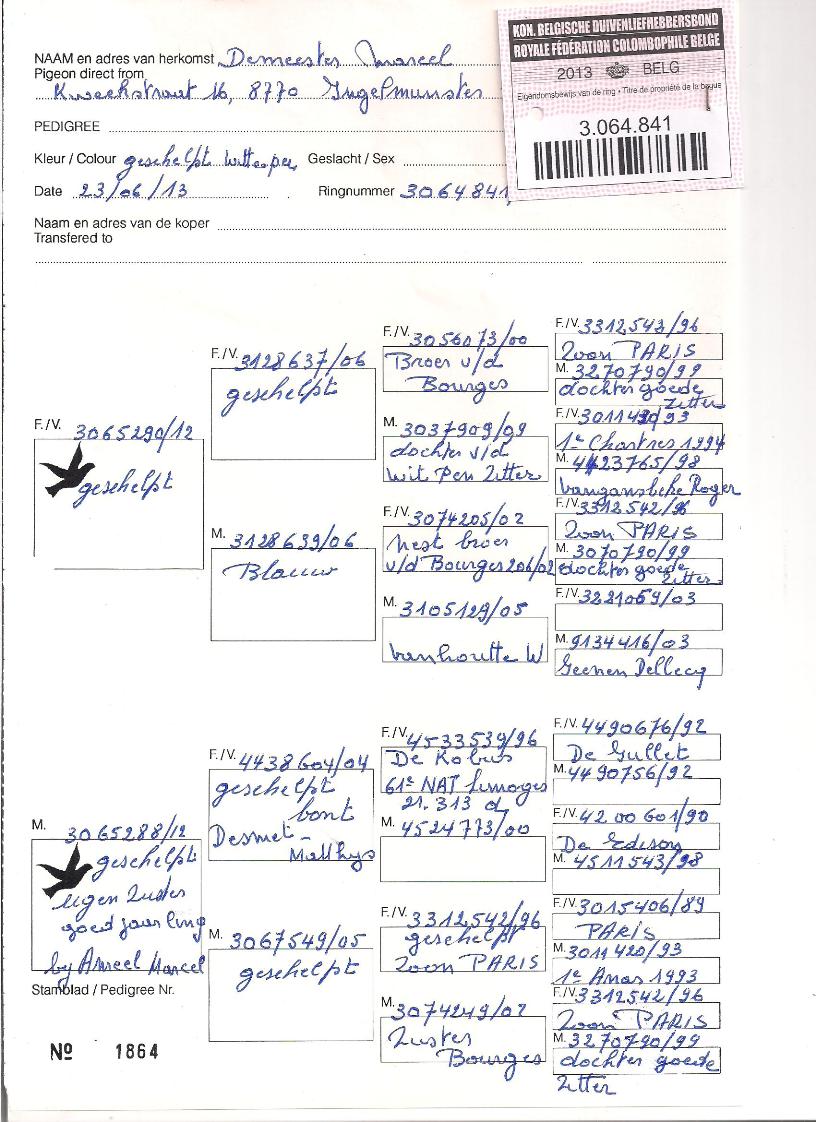 NAAM en adres van herkomst Demeester Marcel
Pigeon direct from
Kweekstraat 16, 8770 Ingelmunster
KON. BELGISCHE DUIVENLIEFHEBBERSBOND
ROYALE FÉDÉRATION COLOMBOPHILE BELGE
2013 BELG
Eigendomsbewijs van de ring • Titre de propriété de la bague
3.064.841
PEDIGREE
Kleur / Colour geschelpt witte pen Geslacht / Sex
Date 23/06/13 Ringnummer 3064841
Naam en adres van de koper
Transfered to
F./V. 3065290/12
geschelpt
F./V. 3128637/06
geschelpt
M. 3128639/06
Blauw
F./V. 3056073/00
Broer v/d
Bourges
M. 3037909/09
dochter v/d
wit Pen Zitter
F./V. 3074205/02
Nest broer
v/d Bourges 206/02
M. 3105129/05
Vanhoutte W
F./V. 3312543/96
Zoon PARIS
M. 3270790/99
dochter goede
Zitter
F./V. 3011430/93
1e Chartres 1994
M. 4423765/98
Vangansbeke Roger
F./V. 3312542/96
Zoon PARIS
M. 3070790/99
dochter goede
Zitter
F./V. 3221059/03
M. 9134416/03
Geenen Dellecq
M. 3065288/12
geschelpt
eigen Zuster
goed jaarling
by Ameel Marcel
F./V. 4438604/04
geschelpt
bont
Desmet-
Matthys
M. 3067549/05
geschelpt
F./V. 4533539/96
De Kobus
61e NAT Limoges
21.313 d
M. 4524773/00
F./V. 3312542/96
geschelpt
Zoon PARIS
M. 3074249/02
Zuster
Bourges
F./V. 4490676/92
De Gullet
M. 4490756/92
F./V. 4200601/90
De Edison
M. 4511543/98
F./V. 3015406/89
PARIS
M. 3011420/93
1e Arras 1993
F./V. 3312542/96
Zoon PARIS
M. 3270790/99
dochter goede
Zitter
Stamblad / Pedigree Nr.
Nº 1864